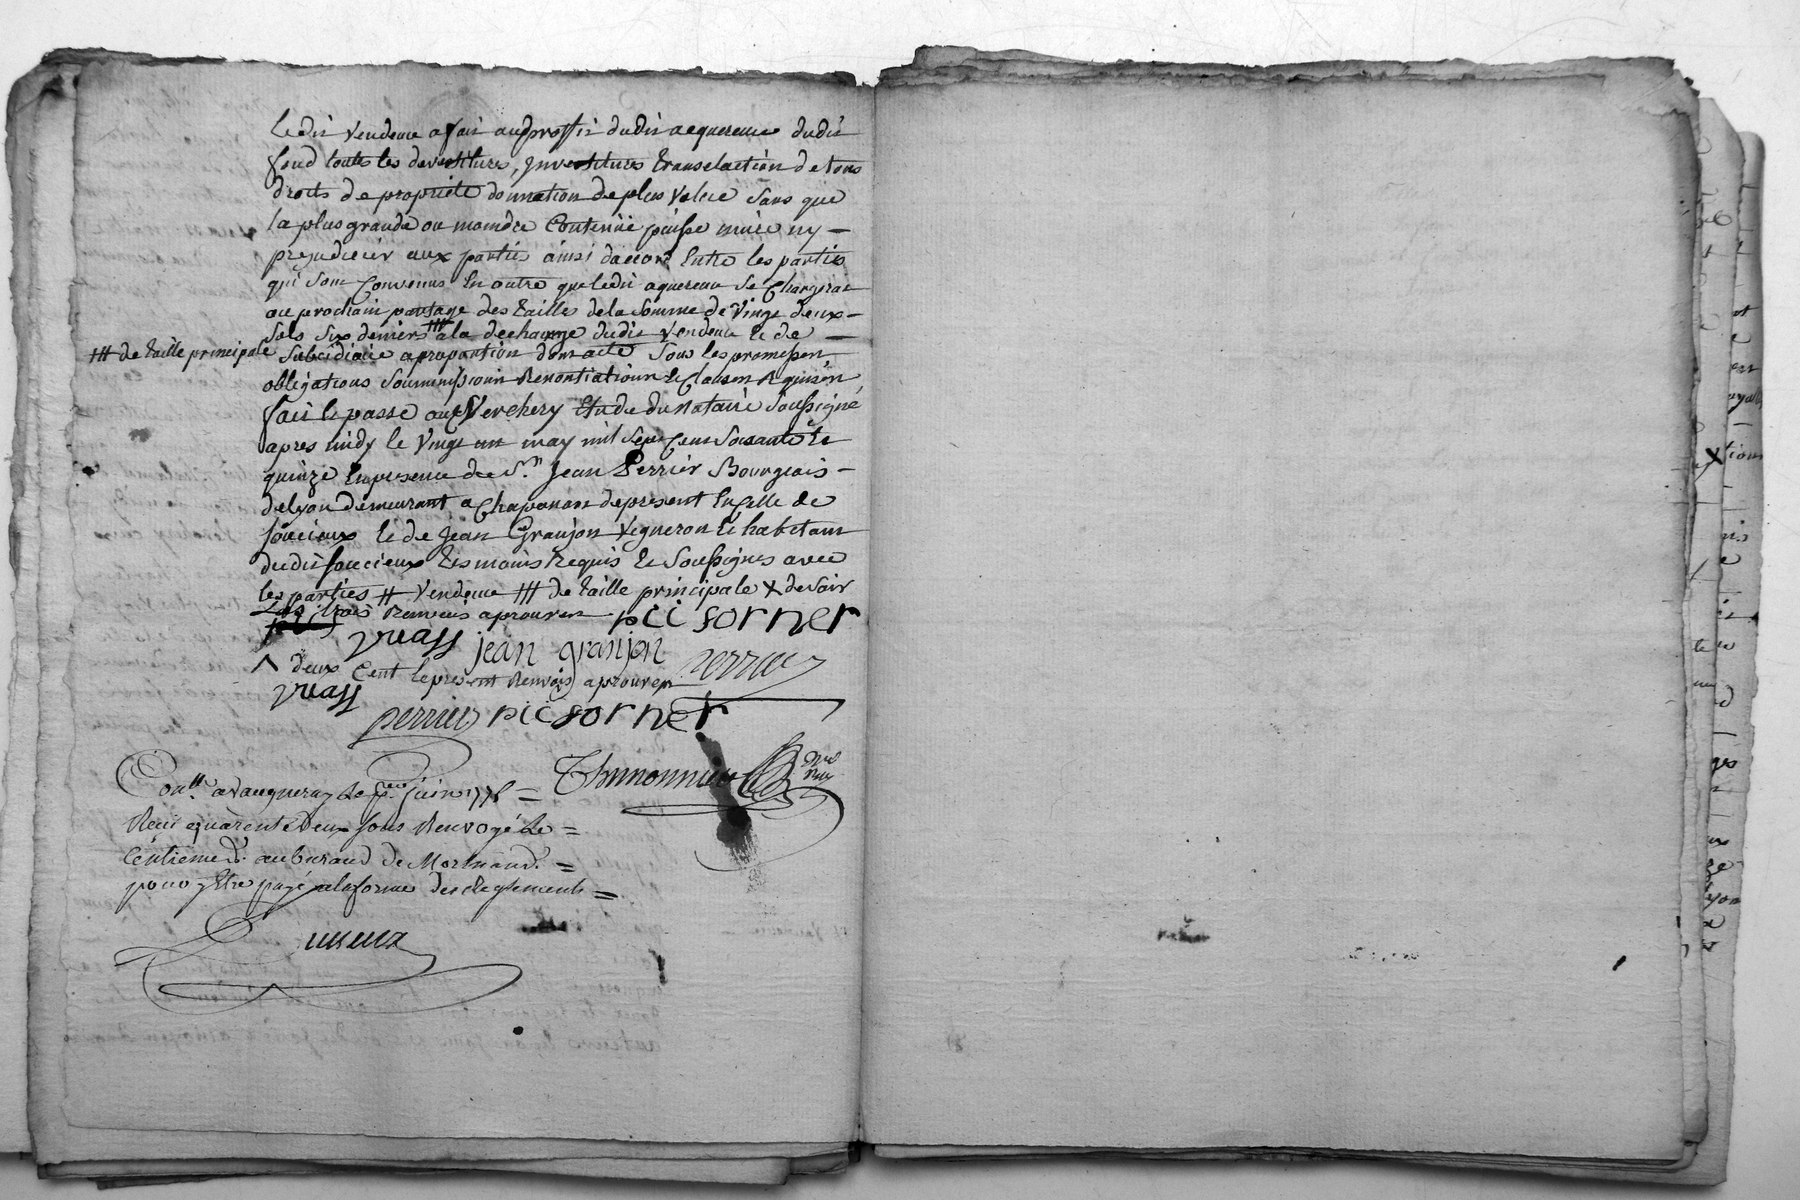 ledit vendeur a fait au proffit dudit acquereur dudit
fond toutes les devestitures, Jnvestitures translaction de tous
droits de propriete donnation de plus value sans que
la plus grande ou moindre Contenüe puisse nuire ny —
prejudicier aux parties ainsi daccord Entre les parties
qui sont Convenus En outre que ledit aquereur se Chargera
au prochain partage des tailles de la somme de vingt deux —
sols six deniers ⧻ a la decharge dudit vendeur et de —
⧻ de taille principale
subcidiaire a proportion dont acte sous les promesses
obligations soummissions Renontiations et Clauses Requises
fait et passé au Verchery Etude du Notaire soussigné
apres midy le vingt un may mil sept Cent soixante et
quinze En presence de Sr. Jean Perrier Bourgeois —
de lyon demeurant a Chaponost de present En Celle de
soucieux et de Jean Granjon vigneron et habitant
dudit soucieux temoins Requis et soussignes avec
les parties # vendeur ⧻ de taille principale x devoir
Les trois Renvois aprouves pic sorner
vuass jean granjon
^ deux Cent le present Renvois aprouver perrier
vuass
perrier pic sorner
Conllé a vaugneray le pr. juin 1775 =
Thimonnier
Reçu quarente deux sous Renvoyé le =
Centieme dr. au buraud de Mornand =
pour y Etre payé a la forme des Reglements =